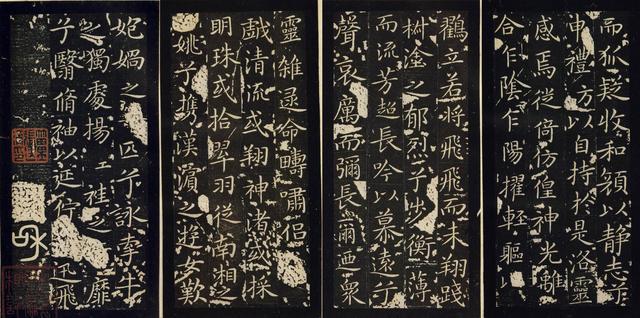 而狐疑收和顏以靜志兮
申禮方以自持於是洛靈
感焉徙倚仿偟神光離
合乍陰乍陽擢輕軀以
鸖立若將飛飛而未翔踐
椒塗之郁烈兮步衡薄
而流芳超長吟以慕遠兮
聲哀厲而彌長爾迺衆
靈雜遝命疇肅侶
戲清流或翔神渚或採
明珠或拾翠羽從南湘之
姚兮攜漢濱之遊女歎
妃媧之匹兮詠牽牛
之獨處揚袿之靡
兮翳脩袖以延佇迅飛